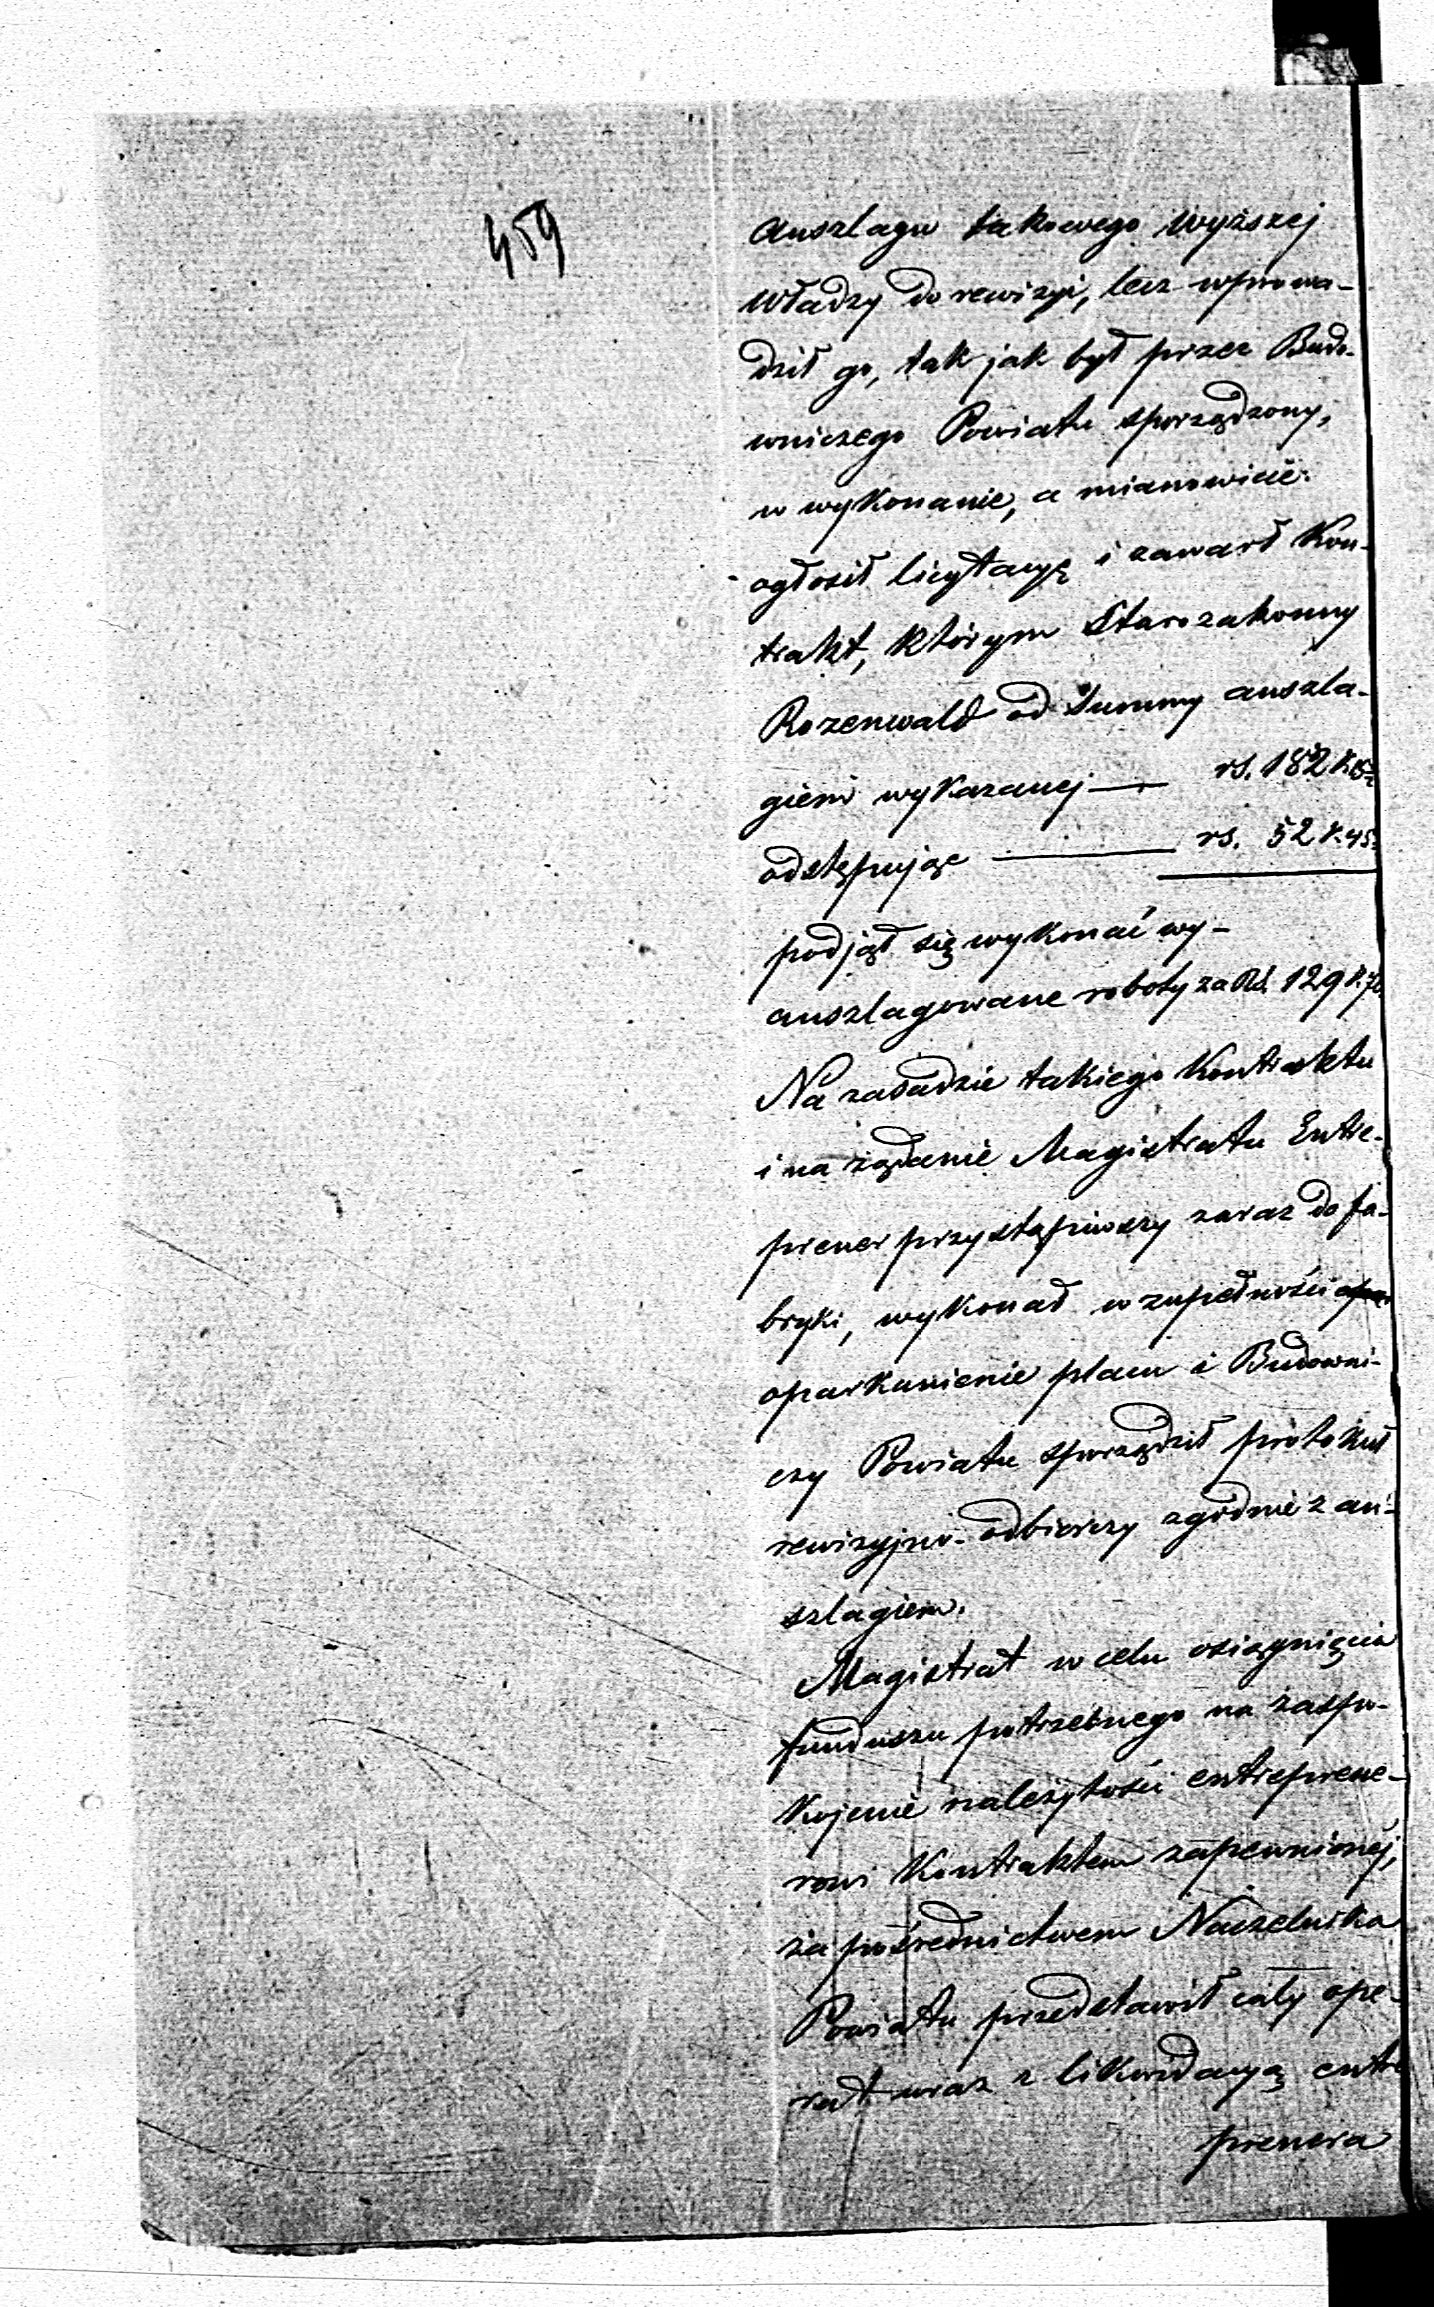 459
auszlagu takowego wyższej
władzy do rewizyi, lecz wprowa-
dził go, tak jak był przez Budo-
wniczego Powiatu sporządzony,
w wykonanie, a mianowicie:
ogłosił licytacyę i zawarł Kon-
trakt, którym Starozakonny
Rozenwald od Summy auszla-
giem wykazanej — rs. 182
odstępując — rs. 52 k. 45
podjął się wykonać wy-
auszlagowane roboty za Rs. 129
Na zasadzie takiego Kontraktu
i na żądanie Magistratu Entre-
prener przystąpiwszy zaraz do fa-
bryki, wykonał w zupełności
oparkanienie placu i Budowni-
czy Powiatu sporządził protokuł
rewizyjno-odbiorczy zgodnie z an-
szlagiem.
Magistrat w celu osiągnięcia
funduszu potrzebnego na zaspo-
kojenie należytości entreprene-
rowi Kontraktem zapewnionéj,
za pośrednictwem Naczelnika
Powiatu przedstawił cały ope-
rat wraz z likwidacyą entre
prenera